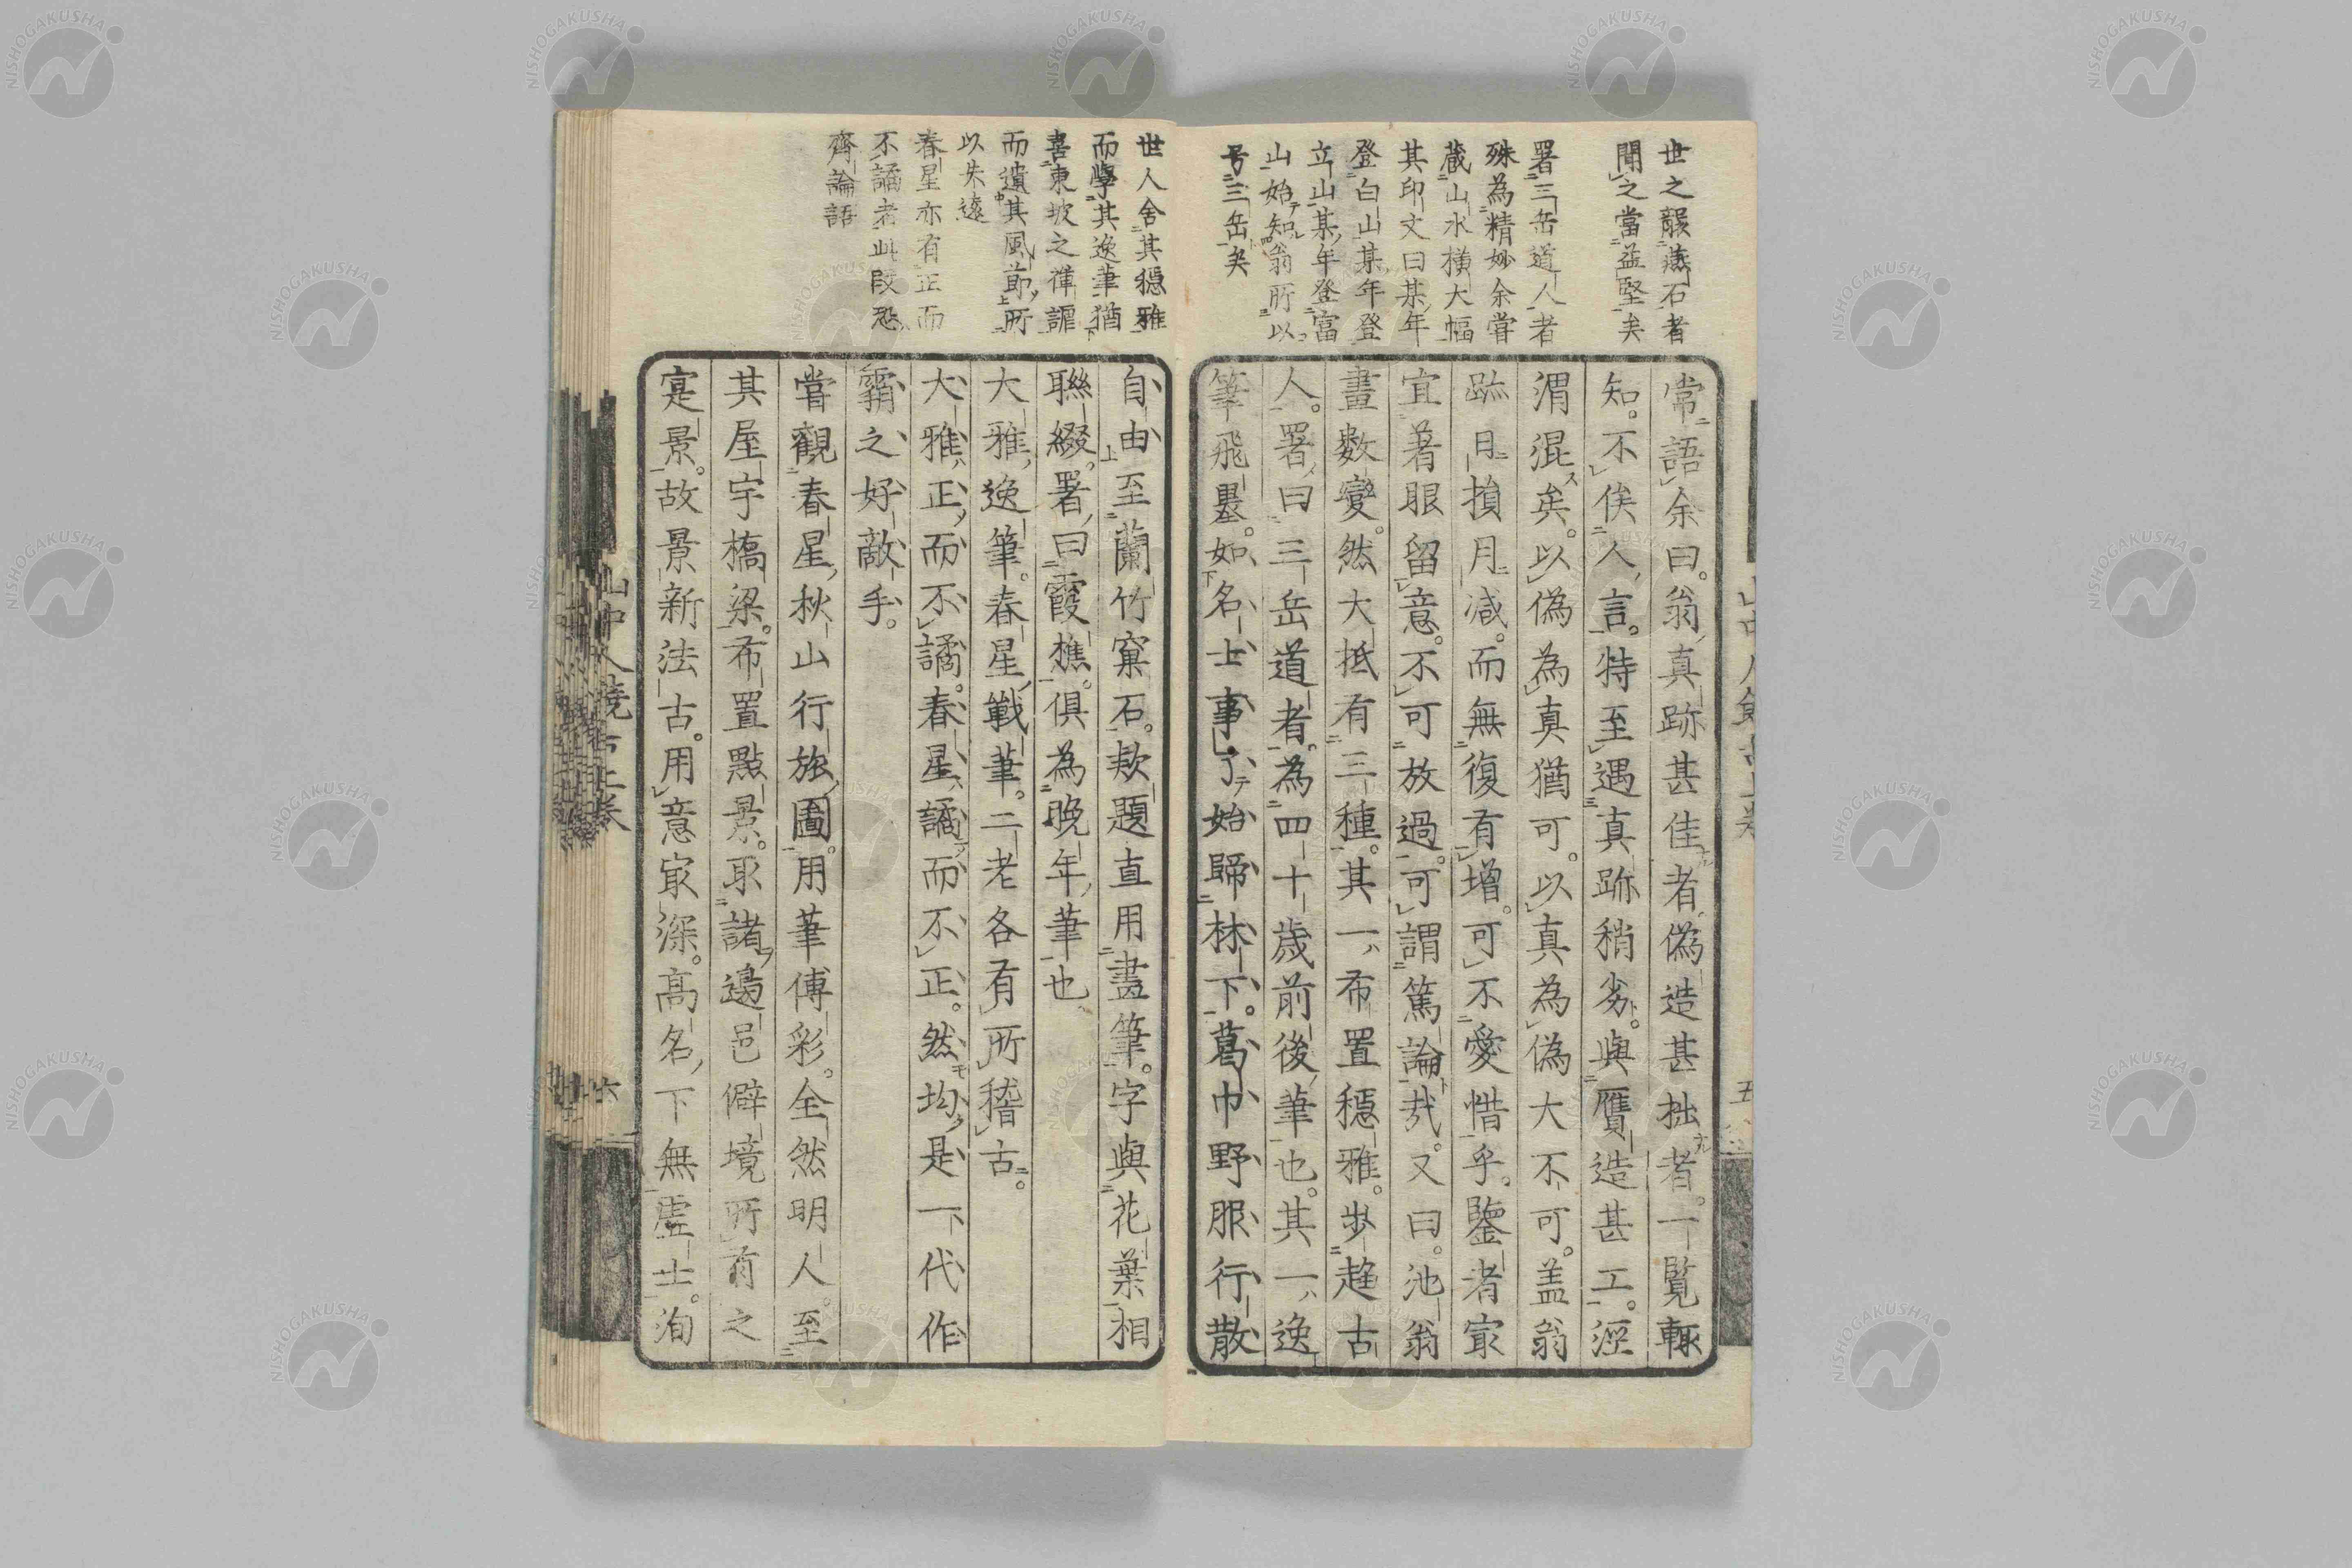 世之韞燕石者
聞之當益堅矣
署三岳道人者
殊為精妙余嘗
蔵山水横大幅
其印文曰某年
登白山某年登
立山某年登富
山始知翁所以
号三岳矣
常語余曰。翁真跡甚佳者偽造甚拙者。一覧輙
知。不俟人言。特至遇真跡稍劣。與贋造甚工。涇
渭混矣。以偽為真猶可。以真為偽大不可。盖翁
跡日損月減。而無復有増。可不愛惜乎。鑒者冣
宜著眼留意。不可放過。可謂篤論哉。又曰。池翁
畫数變。然大抵有三種。其一布置穏雅。歩趨古
人。署曰三岳道者。為四十歳前後筆也。其一逸
筆飛墨。如名士事了始歸林下。葛巾野服行散
世人舍其穏雅
而學其逸筆猶
喜東坡之禪謔
而遺其風節所
以失遠
春星亦有正而
不譎者此段恐
齊論語
自由至蘭竹窠石。欵題直用畫筆。字與花葉相
聯綴。署曰霞樵。俱為晩年筆也
大雅逸筆。春星戰筆。二老各有所稽古。
大雅正而不譎。春星譎而不正。然均是一代作
霸之好敵手。
嘗觀春星秋山行旅圖。用筆傅彩。全然明人。至
其屋宇橋梁。布置點景。取諸邉邑僻境所有之
寔景。故景新法古。用意冣深。高名下無虚士。洵
山中人饒舌上巻
六
五